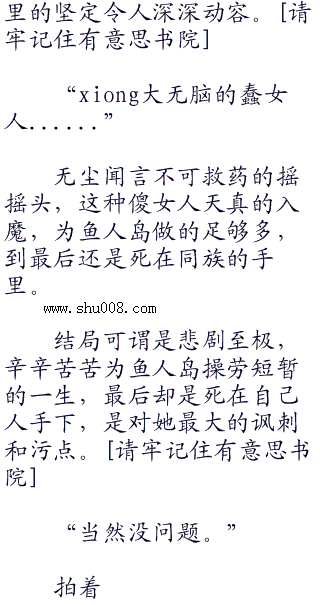 里的坚定令人深深动容。[请
牢记住有意思书院]
“xiong大无脑的蠢女
人......”
无尘闻言不可救药的摇
摇头，这种傻女人天真的入
魔，为鱼人岛做的足够多，
到最后还是死在同族的手
里。
www.shu008.com
结局可谓是悲剧至极，
辛辛苦苦为鱼人岛操劳短暂
的一生，最后却是死在自己
人手下，是对她最大的讽刺
和污点。[请牢记住有意思书
院]
“当然没问题。”
拍着